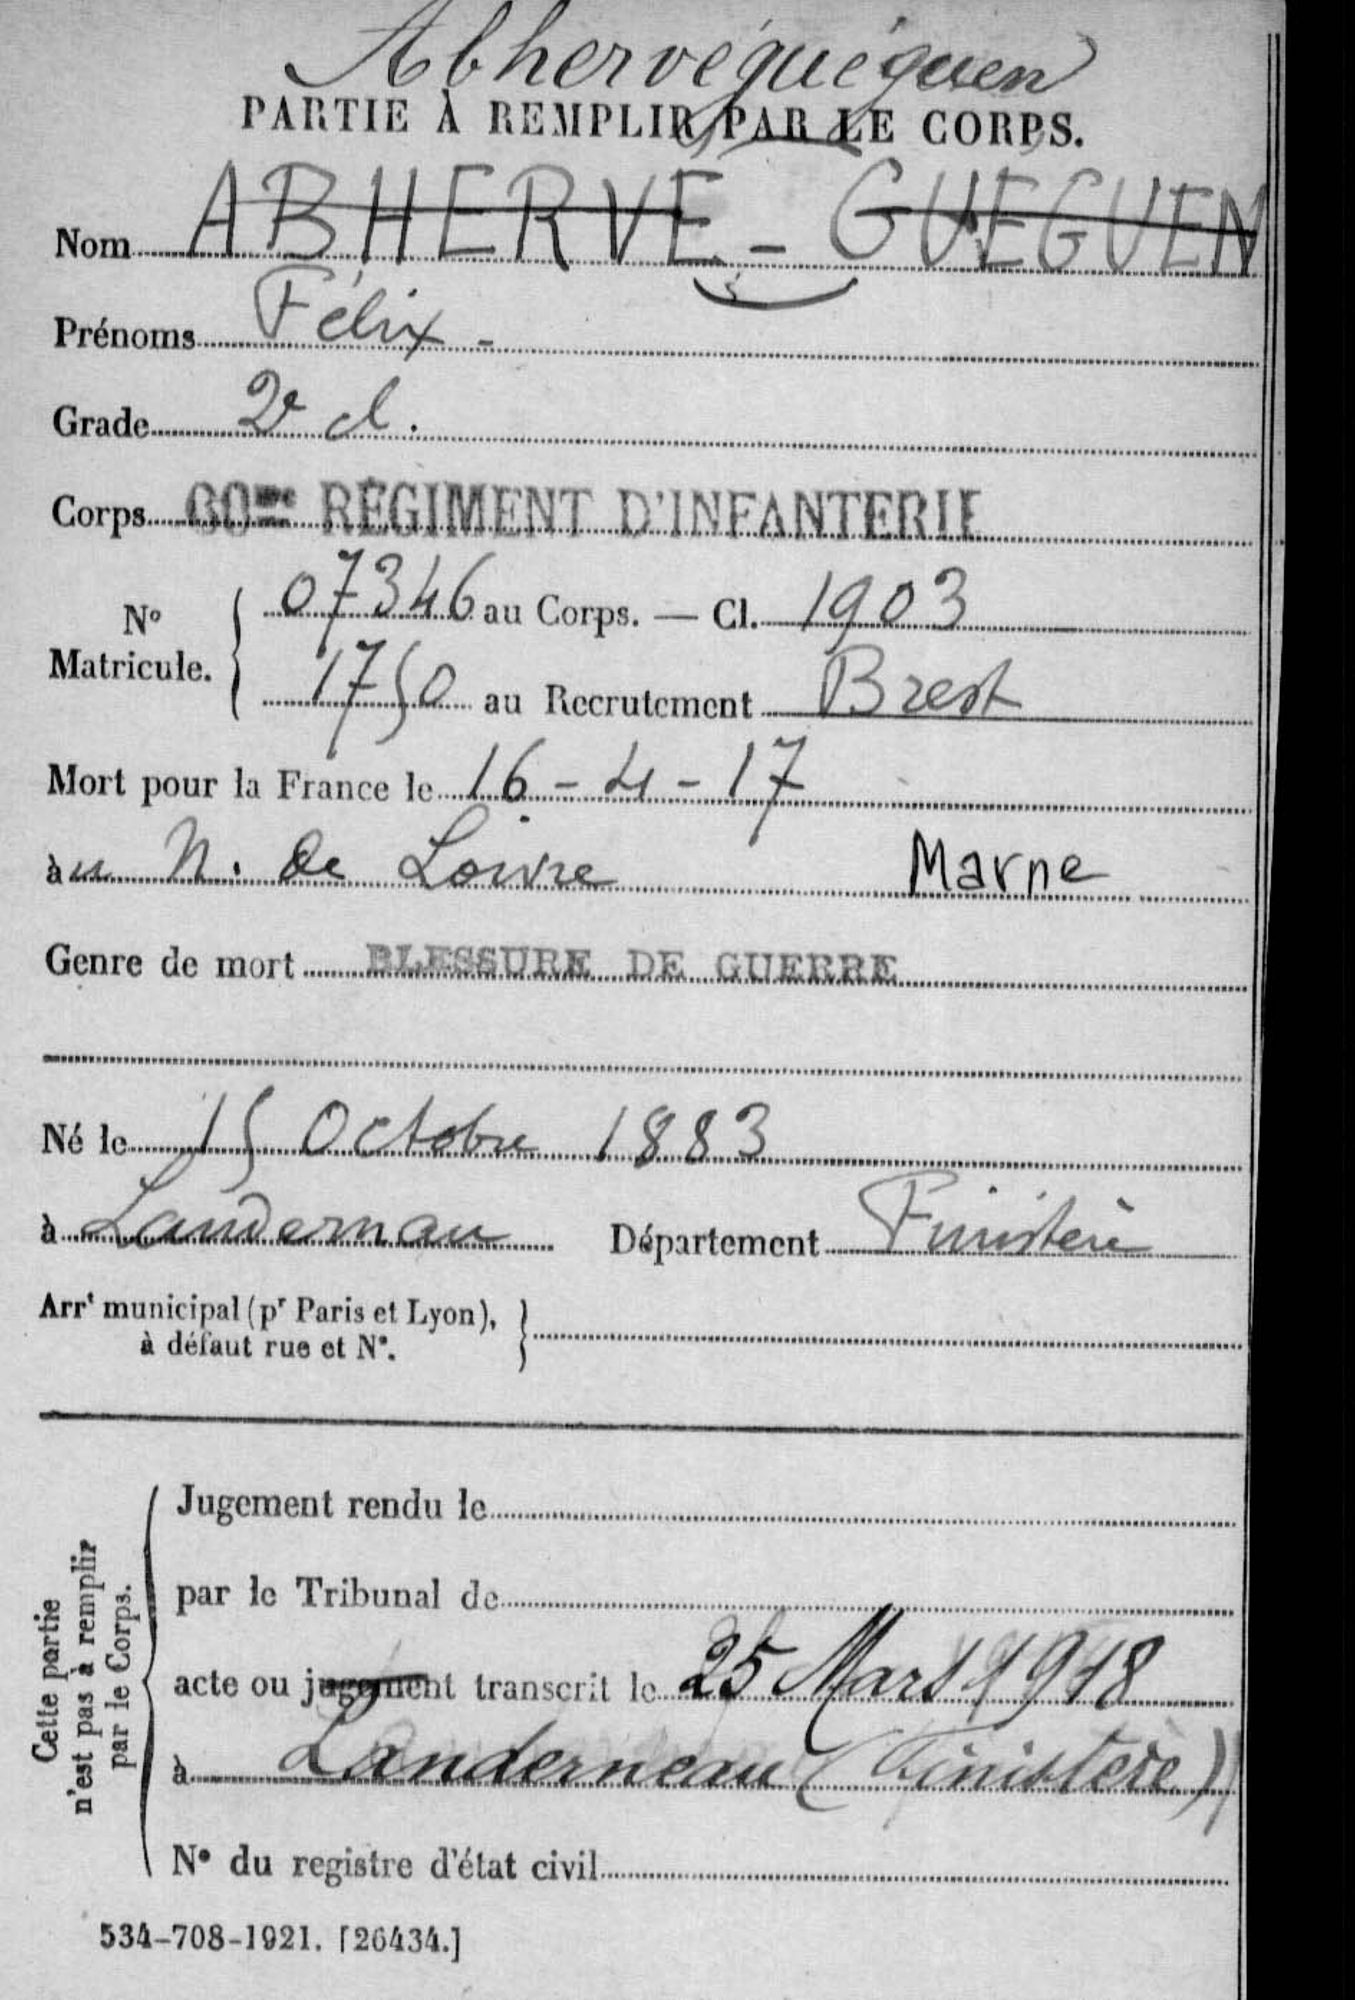 Abhervéguéguen
PARTIE À REMPLIR PAR LE CORPS.
Nom ABHERVE - GUÉGUEN
Prénoms Félix -
Grade 2e cl.
Corps 60me RÉGIMENT D'INFANTERIE
No Matricule. { 07346 au Corps. — Cl. 1903
1750 au Recrutement Brest
Mort pour la France le 16 - 4 - 17
àu N. de Loivre Marne
Genre de mort BLESSURE DE GUERRE
Né le 15 Octobre 1883
à Landernau Département Finistère
Arrt municipal (pr Paris et Lyon),
à défaut rue et No.
Cette partie
n'est pas à remplir
par le Corps.
Jugement rendu le
par le Tribunal de
acte ou jugement transcrit le 25 Mars 1918
à Landerneau (Finistère)
No du registre d'état civil
534-708-1921. [26434.]